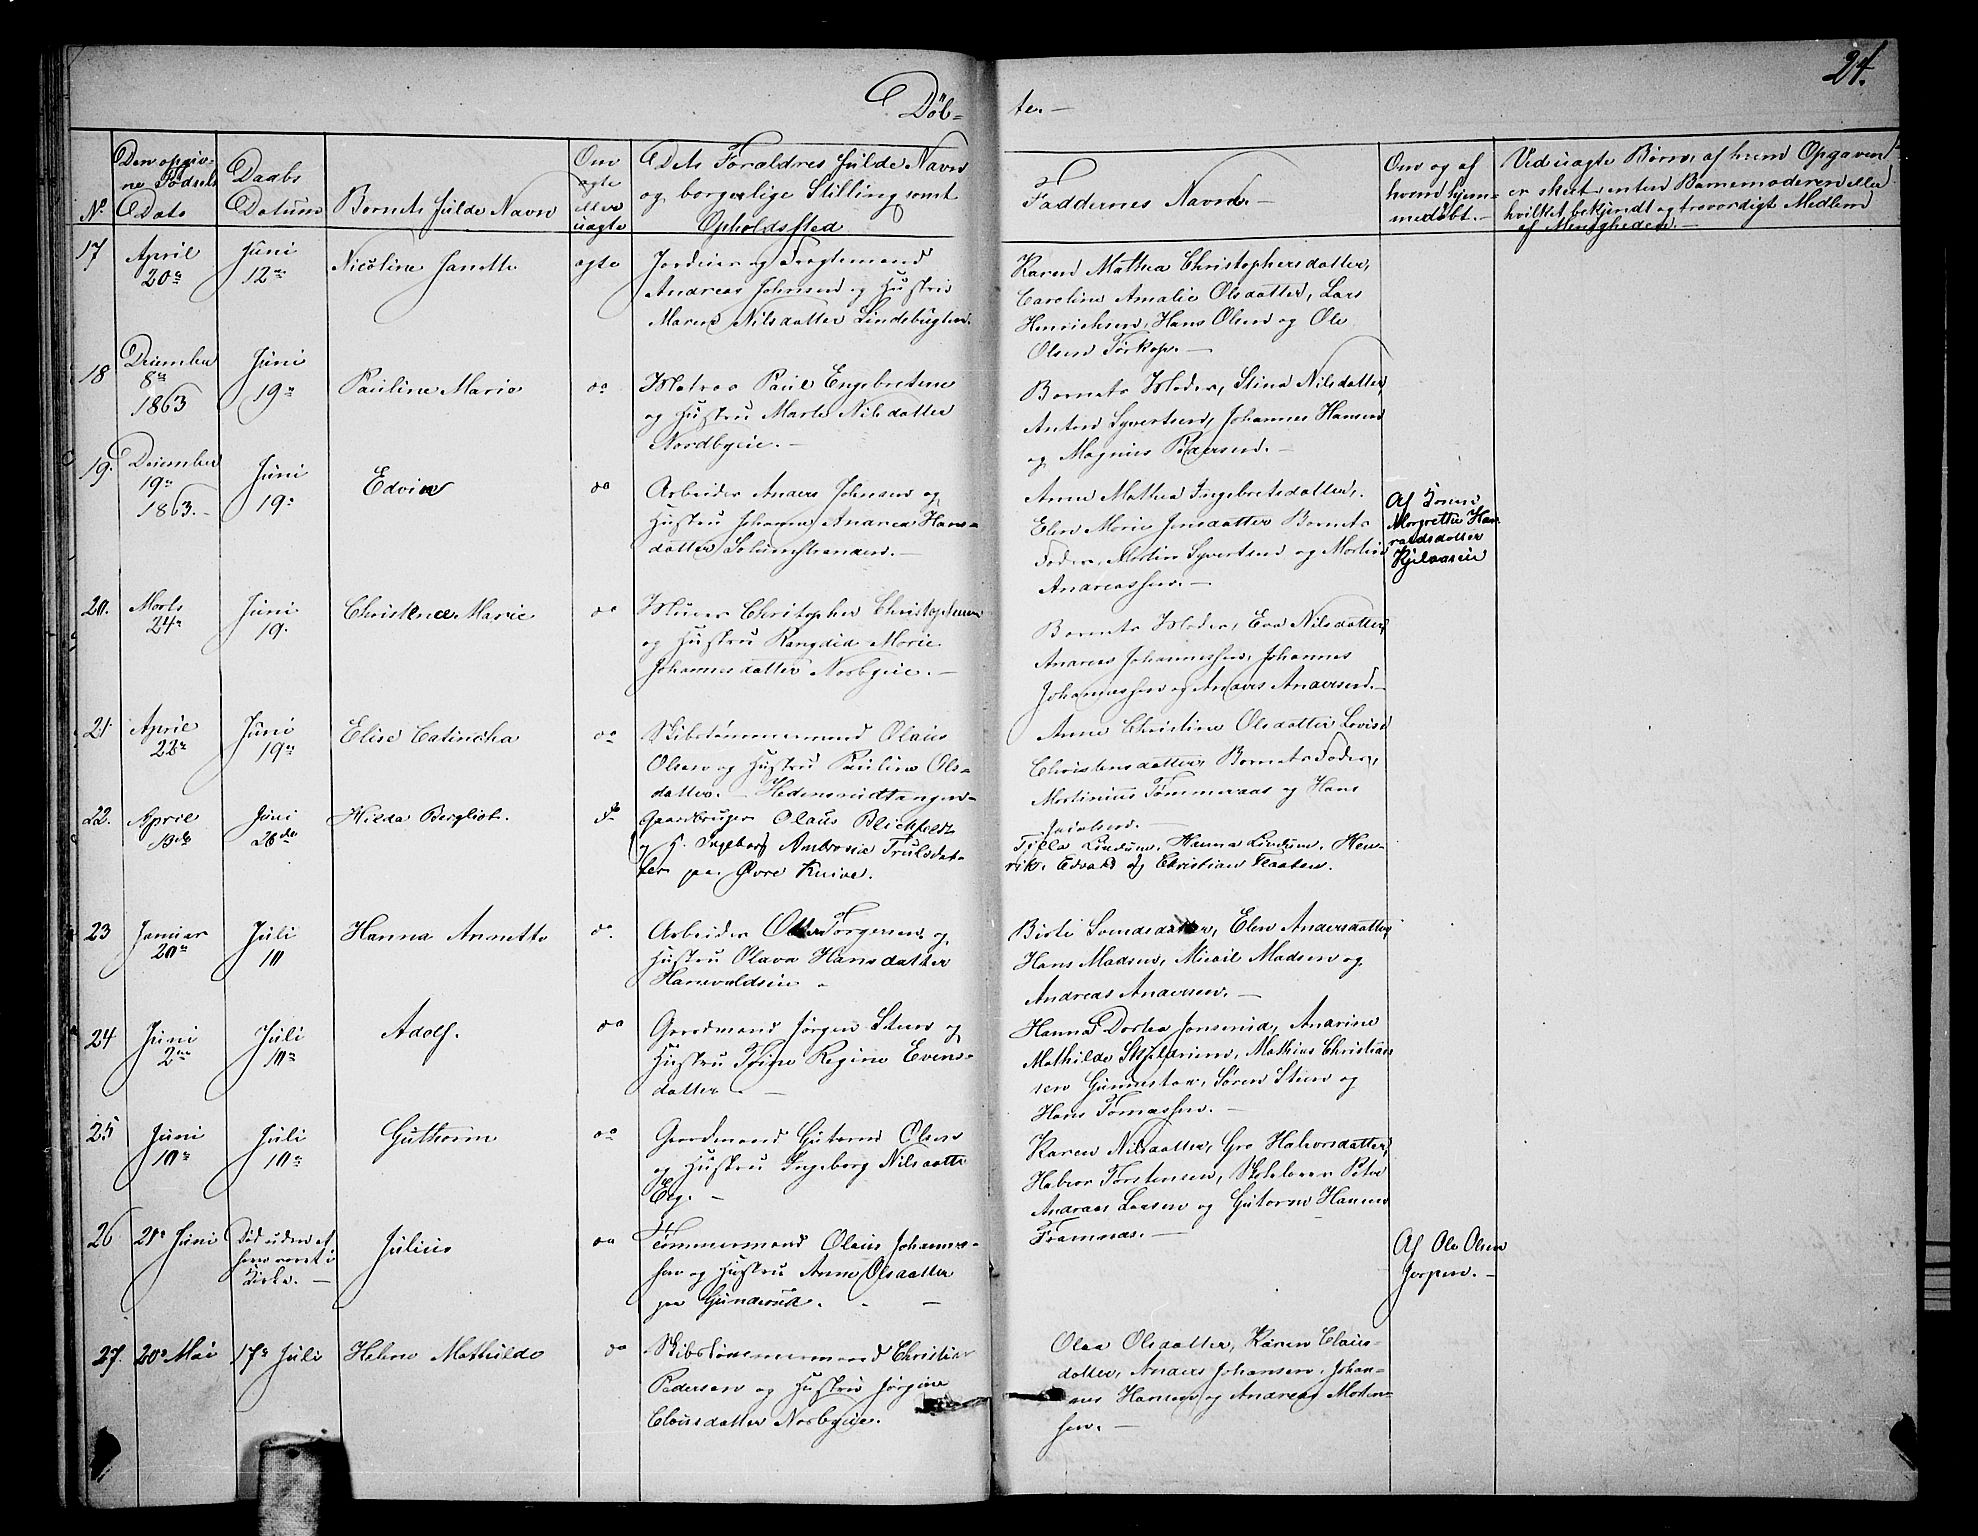 24.
Døb-
te.-
No
Den opgiv-
ne Fødsels
Dato
Daabs
Datum
Barnets fulde Navn
Om
ægte
eller
uægte
Dets Forældres fulde Navn
og borgerlige Stilling samt
Opholdssted
Faddernes Navne.-
Om og af
hvem hjem-
medøbt.-
Ved uægte Børn, af hvem Opgaven
er skeet, enten Barnemoderen eller
hvilket bekjendt og troværdigt Medlem
af Menigheden.-
17
April
20de
Juni
12te
Nicoline Janette
ægte
Andreas Johnsen og Hustru
Maren Nilsdatter Lindebugten.
Karen Mathea Christophersdatter,
Caroline Amalie Olsdatter, Lars
Henrichsen, Hans Olsen og Ole
Olsen Tørkop.-
18
December
8de
1863
Juni
19de
Pauline Marie
do
Matros Paul Engebretsen
og Hustru Marte Nilsdatter
Nordbyeie.-
Barnets Moder, Stina Nilsdatter,
Anton Syvertsen, Johannes Hansen
og Magnus Pedersen.-
19.
December
19de
1863.-
Juni
19de
Edvin
do
Arbeider Anders Johnsen og
Hustru Johanne Andrea Hans-
datter Solumstranden.-
Anne Mathea Ingebretsdatter,
Elen Marie Jensdatter Barnets
Fader, Martin Syvertsen og Martin
Andreassen.-
Af
Margrethe Har-
raldsdatter
Kjelaaseie
20.
Marts
24de
Juni
19.
Christence Marie
do
Murer Christopher Christophersen
og Hustru Rangdid Marie
Johannesdatter Norbyeie.-
Barnets Moder, Eva Nilsdatter,
Andreas Johannessen, Johannes
Johannessen og Anders Andersen.-
21.
April
22de
Juni
19de
Elise Catincha
do
Skibstømmermand Olaus
Olsen og Hustru Pauline Ols-
datter.- Hedensrudtangen-
Anne Christine Olsdatter Lovise
Christensdatter, Barnets Fader,
Martinius Tømmeraas og Hans
Jacobsen.-
22.
April
19de
Juni
26de
Hilda Bergliot.
do
Gaardbruger Olaus Blichfeldt
og H. Ingeborg Ambrosia Trulsdat-
ter paa Øvre Knive.
Tilla Lindum, Hanna Lindum, Hen-
rik, Edvard og Christian Flaaten.
23
Januar
20de
Juli
10
Hanna Annette
do.
Arbeider Torgersen og
Hustru Olava Hansdatter
Harevaldseie.
Birte Svendsdatter, Elen Andersdatter,
Hans Madsen, Micail Madsen og
Andreas Andersen.-
24
Juni
2den
Juli
10de
Adolf.
do
Gaardmand Jørgen Steen og
Hustru Regine Evens-
datter.-
Hanna Dortea Jonserud, Anarine
Mathilde, Mathias Christian-
sen, Søren Steen og
Hans Tomassen.-
25
Juni
10de
Juli
10de
Guthorm
do
Gaardmand Gutorm Olsen
og Hustru Ingeborg Nilsdatter
Eeg.-
Karen Nilsdatter, Gro Halvorsdatter,
Halvor Torstensen, Skolelærer Peter
Andreas Larsen og Gutorm Hansen
Framnæs.-
26
21de Juni
Død uden at
have været i
Kirke.-
Julius
do
Tømmermand Olaus Johannes-
sen og Hustru Anne Olsdatter
paa Gunderud.-
Af Ole Olsen
27.
20de Mai
17de Juli
Helene Mathilde
do
Skibstømmermand Christian
Pedersen og Hustru Jørgine
Clausdatter Norbyeie.
Olea Olsdatter, Karen Claus-
datter, Anders Johansen, Johan-
nes Hansen og Andreas Morten-
sen.-